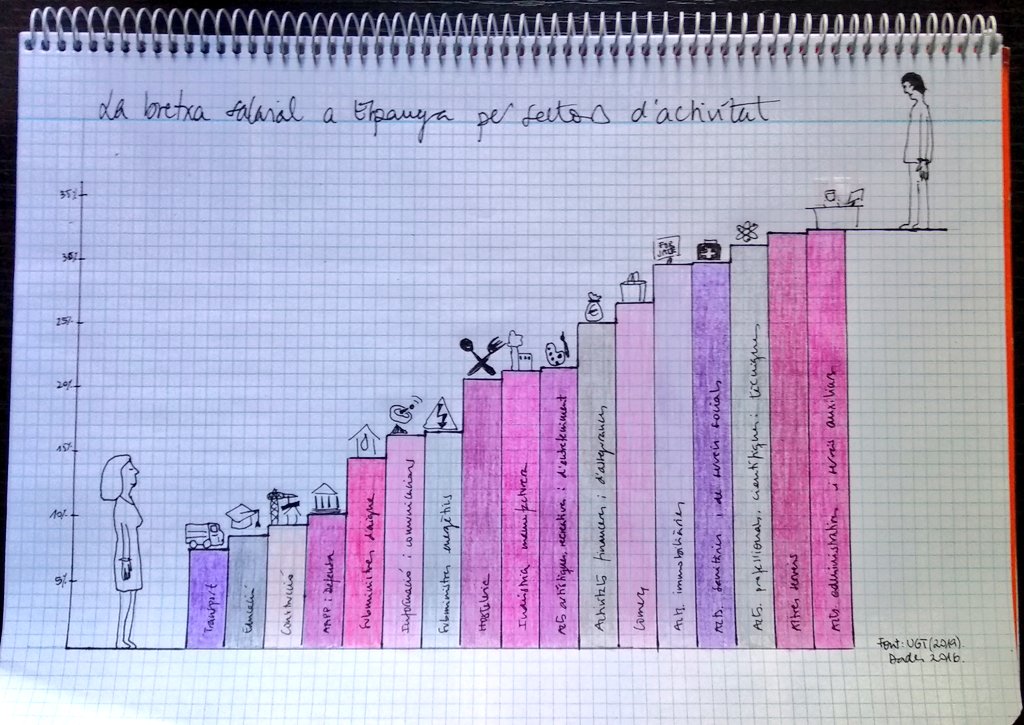 La bretxa salarial a Espanya per sectors d'activitat
35%
30%
25%
20%
15%
10%
5%
Transport
Educació
Construcció
AAPP i Defensa
Subministres d'aigua
Informació i comunicacions
Subministres energètics
Hostaleria
Indústria manufacturera
Acts artístiques, recreatives i d'entreteniment
Activitats financeres i d'assegurances
Comerç
Acts. immobiliàries
FOR SALE
Acts. Sanitàries i de serveis socials
Acts. professionals, científiques i tècniques
Altres serveis
Acts administratives i serveis auxiliars
Font: UGT (2019).
Dades 2016.